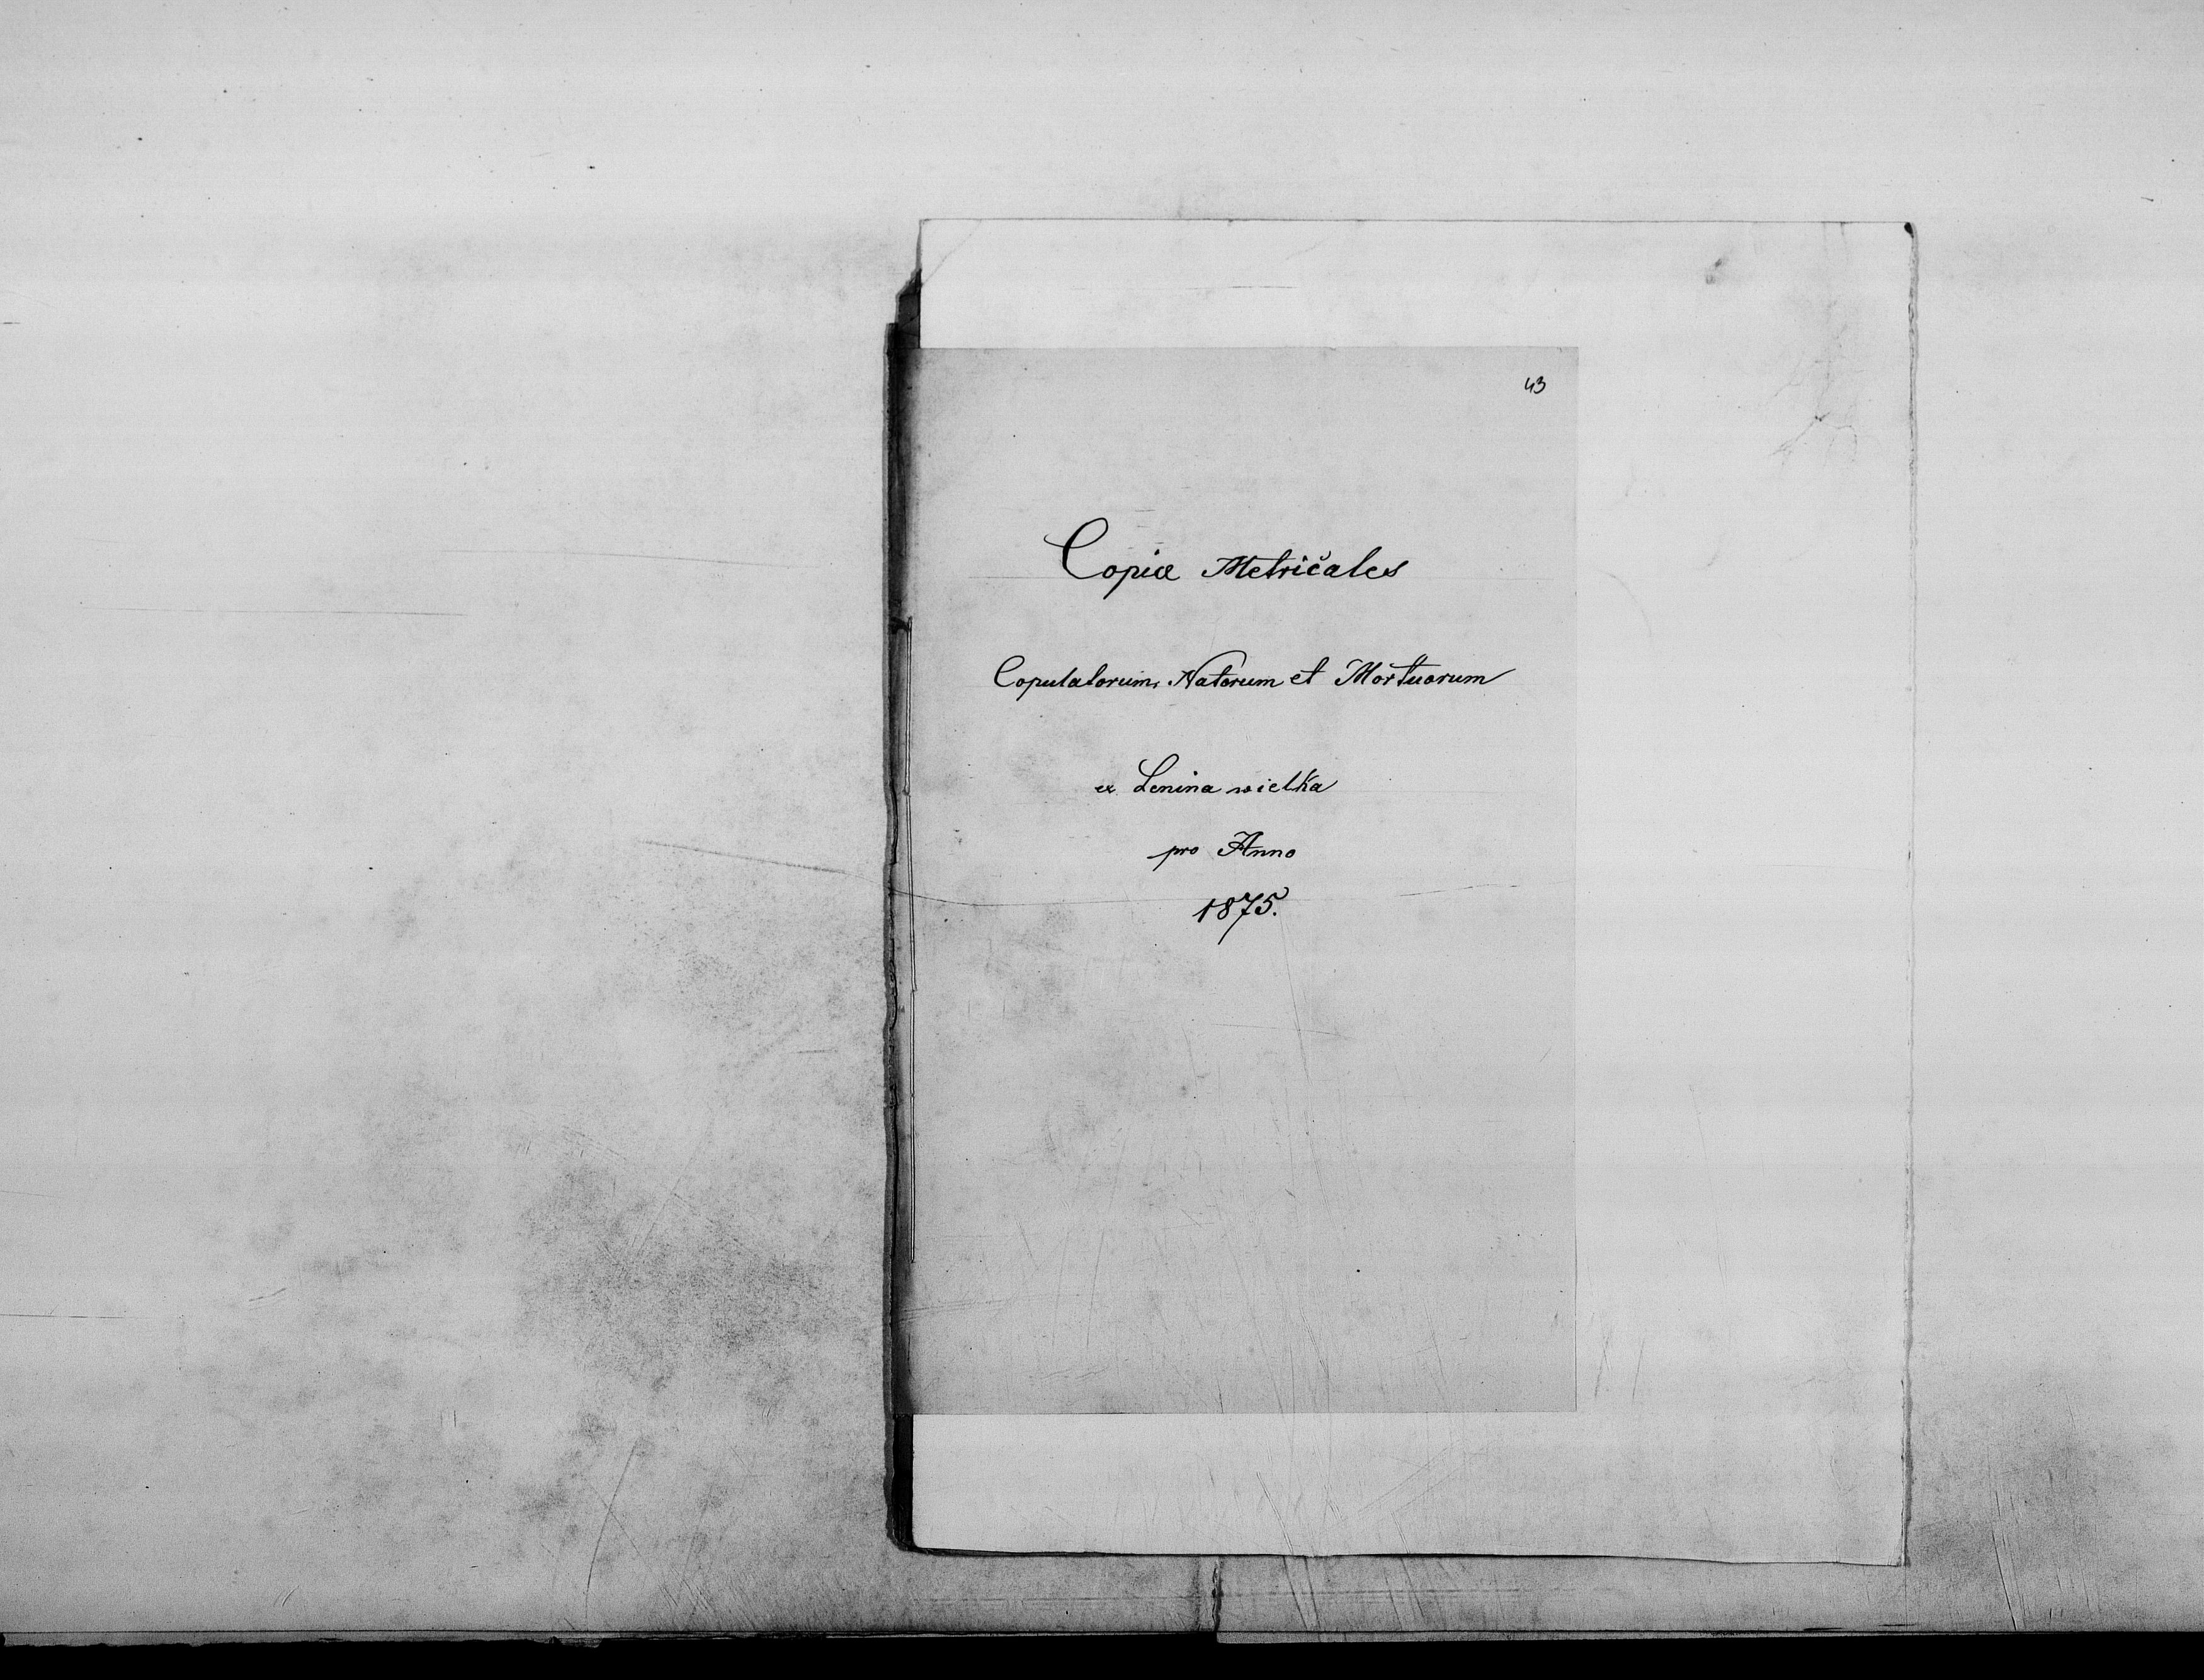 43
Copiæ Metričales
Copulatorum, Natorum et Mortuorum
ex Lenina wielka
pro Anno
1875.